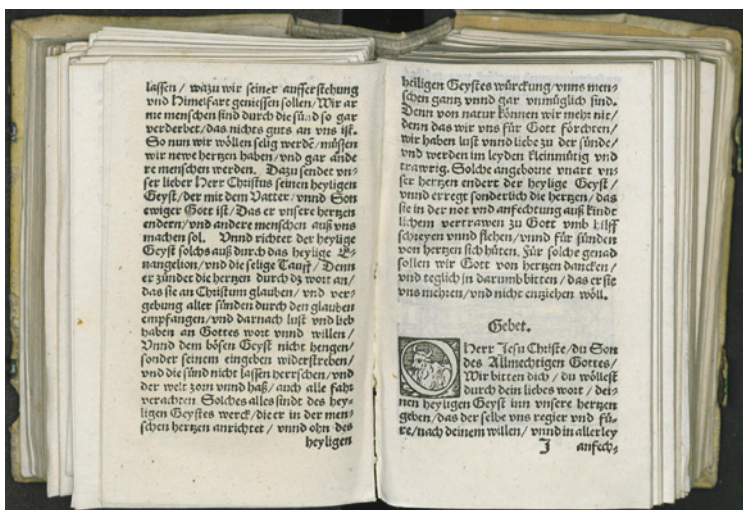 lassen / wazu wir seiner aufferstehung
vnd Himelfart geniessen sollen / Wir ar
me menschen sind durch die sünd so gar
verderbet / das nichts guts an vns ist.
So nun wir wöllen selig werdē / müssen
wir newe hertzen haben / vnd gar ande
re menschen werden. Dazu sendet vn⸗
ser lieber Herr Christus seinen heyligen
Geyst / der mit dem Vatter / vnnd Son
ewiger Gott ist / Das er vnsere hertzen
endern / vnd andere menschen auß vns
machen sol. Vnnd richtet der heylige
Geyst solchs auß durch das heylige E⸗
uangelion / vnd die selige Tauff / Denn
er zündet die hertzen durch dz wort an /
das sie an Christum glauben / vnd ver⸗
gebung aller sünden durch den glauben
empfangen / vnd darnach lust vnd lieb
haben an Gottes wort vnnd willen /
Vnnd dem bösen Geyst nicht hengen /
sonder seinem eingeben widerstreben /
vnd die sünd nicht lassen herrschen / vnd
der welt zorn vnnd haß / auch alle fahr
verachten Solches alles sindt des hey⸗
ligen Geystes werck / die er in der men⸗
schen hertzen anrichtet / vnnd ohn des
heyligen
heiligen Geystes würckung / vnns men⸗
schen gantz vnnd gar vnmüglich sind.
Denn von natur können wir mehr nit /
denn das wir vns für Gott förchten /
wir haben lust vnnd liebe zu der sünde /
vnd werden im leyden kleinmütig vnd
trawrig. Solche angeborne vnart vn⸗
ser hertzen endert der heylige Geyst /
vnnd erregt sonderlich die hertzen / das
sie in der not vnd anfechtung auß kindt
lichem vertrawen zu Gott vmb hilff
schreyen vnnd flehen / vnnd für sünden
von hertzen sich hüten. Für solche genad
sollen wir Gott von hertzen dancken /
vnd teglich in darumb bitten / das er sie
vns mehren / vnd nicht entziehen wöll.
Gebet.
O Herr Jesu Christe / du Son
des Allmechtigen Gottes /
Wir bitten dich / du wöllest
durch dein liebes wort / dei⸗
nen heyligen Geyst inn vnsere hertzen
geben / das der selbe vns regier vnd fü⸗
re / nach deinem willen / vnnd in allerley
J anfech⸗